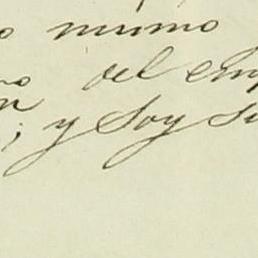 o mismo
del Emp
n
; y Soy Su